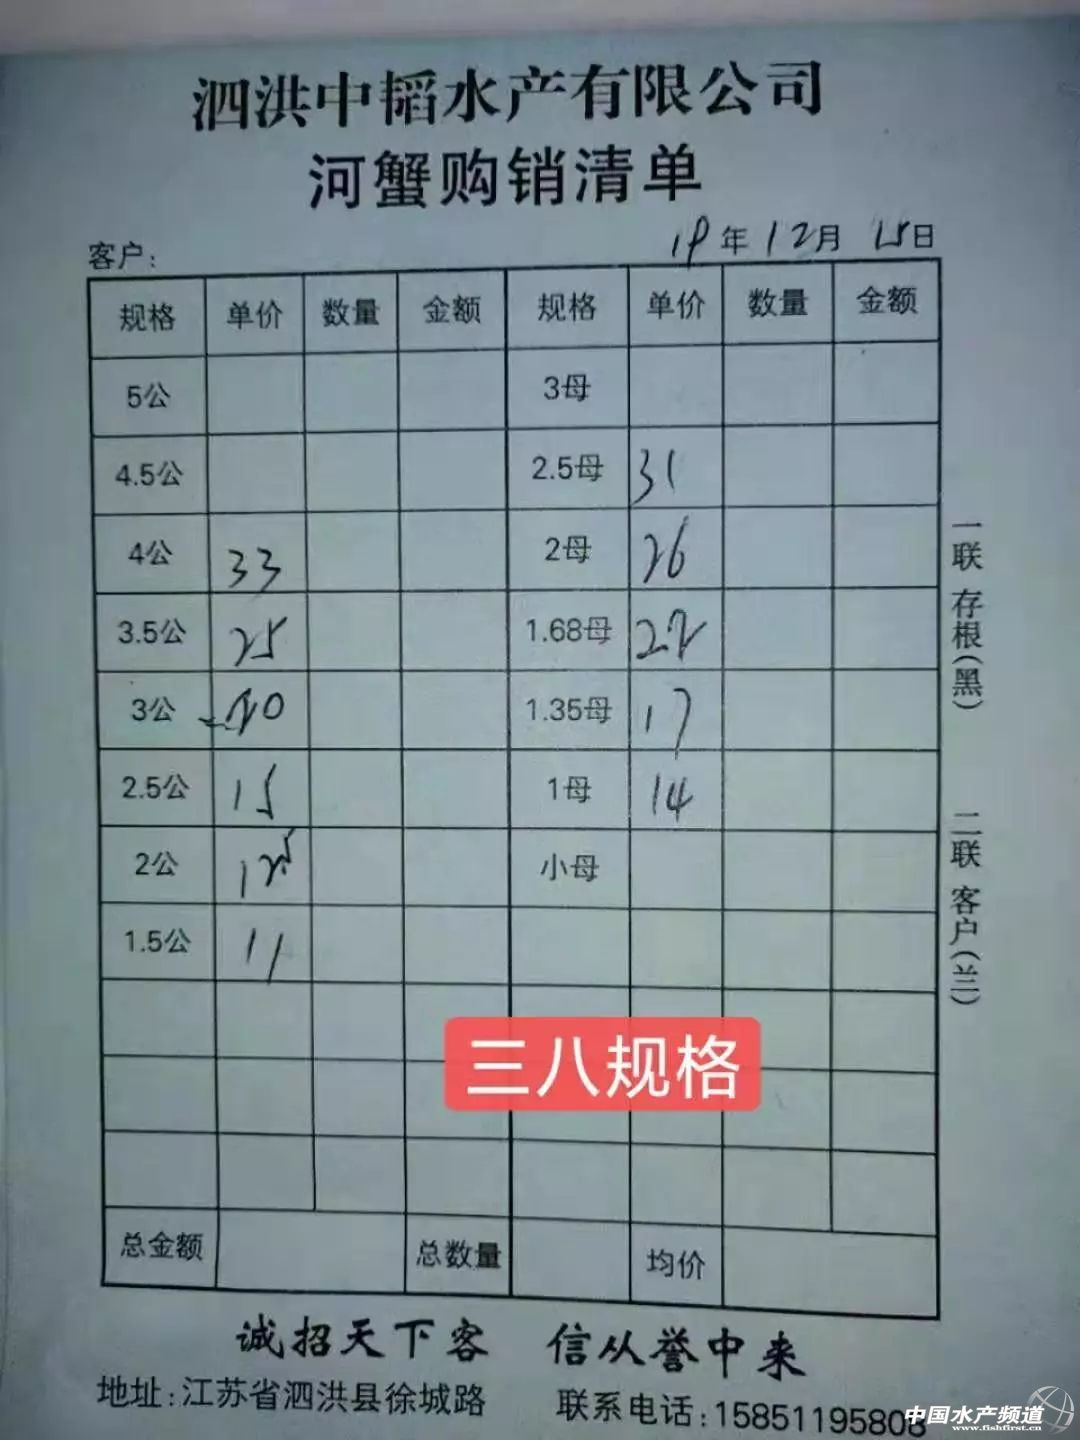 泗洪中韬水产有限公司
河蟹购销清单
客户: 19年12月15日
规格 单价 数量 金额 规格 单价 数量 金额
5公 3母
4.5公 2.5母 31
4公 33 2母 26
3.5公 25 1.68母 22
3公 20 1.35母 17
2.5公 15 1母 14
2公 小母
1.5公 11
三八规格
总金额 总数量 均价
诚招天下客 信从誉中来
地址:江苏省泗洪县徐城路 联系电话:15851195808
一联 存根(黑) 二联 客户(兰)
中国水产频道
www.fishfirst.cn